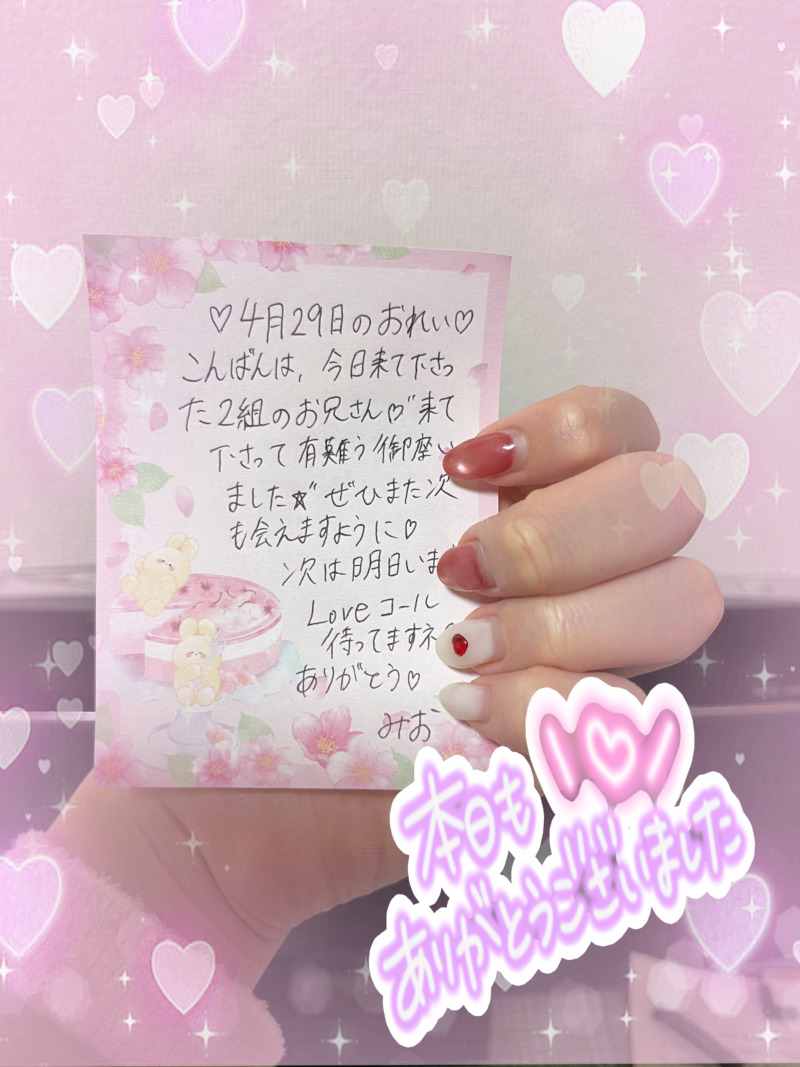 ♡4月29日のおれい♡
こんばんは, 今日来て下さっ
た2組のお兄さん♡゛来て
下さって有難う御座い
ました☆゛ぜひまた次
も会えますように♡
次は明日いま
Loveコール
待ってますネ
ありがとう♡
みお
本日も
ありがとうございました